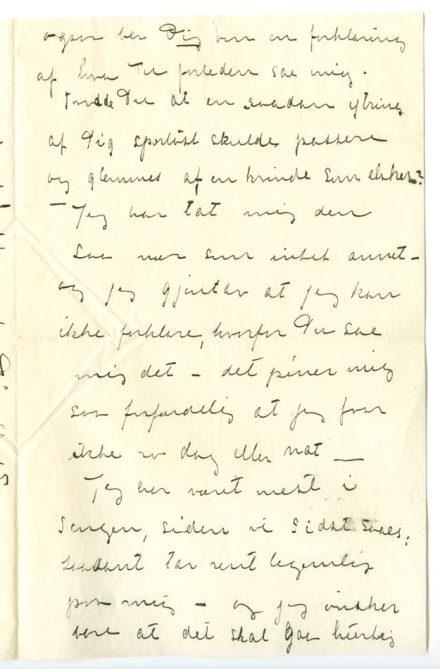 ogsaa ber Dig om en forklaring
af hva Du forleden sae mig.
Trodde Du at en saadan ytring
af Dig sporløst skulde passere
og glemmes af en kvinde som elsker?
– Jeg har tat mig den
saa nær som intet annet –
og jeg gjentar at jeg kan
ikke forklare, hvorfor Du sae
mig det – det piner mig
saa forfærdelig at jeg faar
ikke ro dag eller nat —
Jeg har været mest i
Sengen, siden vi sidst saaes;
saadant tar rent legemlig
paa mig – og jeg ønsker
bare at det skal gaa hurtig